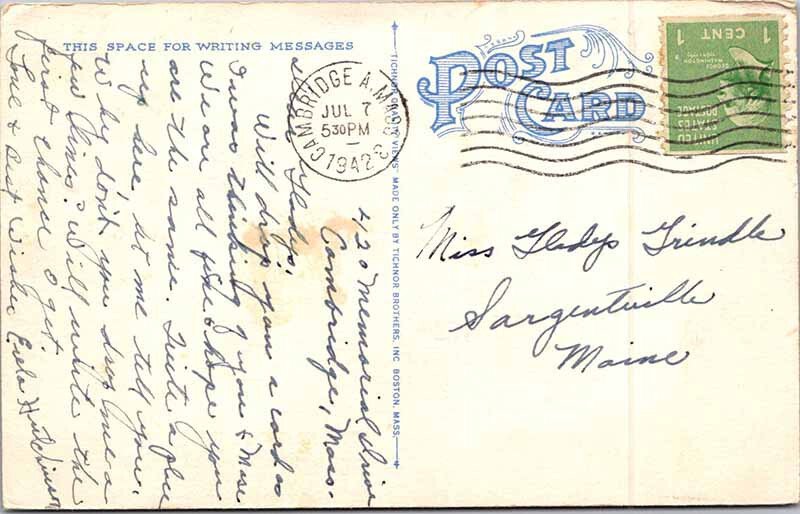 THIS SPACE FOR WRITING MESSAGES
POST CARD
CAMBRIDGE A, MASS.
JUL 7
5 30 PM
1942
UNITED STATES POSTAGE
1 CENT 1
TICHNOR QUALITY VIEWS MADE ONLY BY TICHNOR BROTHERS, INC BOSTON, MASS.
420 Memorial Drive
Cambridge, Mass.
Dear Gladys,
Will drop you a card as
I was thinking of you &
We are all fine & hope you
are the same. Quite a place
up here, let me tell you.
Why don't you drop me a
few lines? Will write the
first chance I get.
Love & Best Wishes Hutchinson
Miss Gladys Grindle
Sargentville
Maine